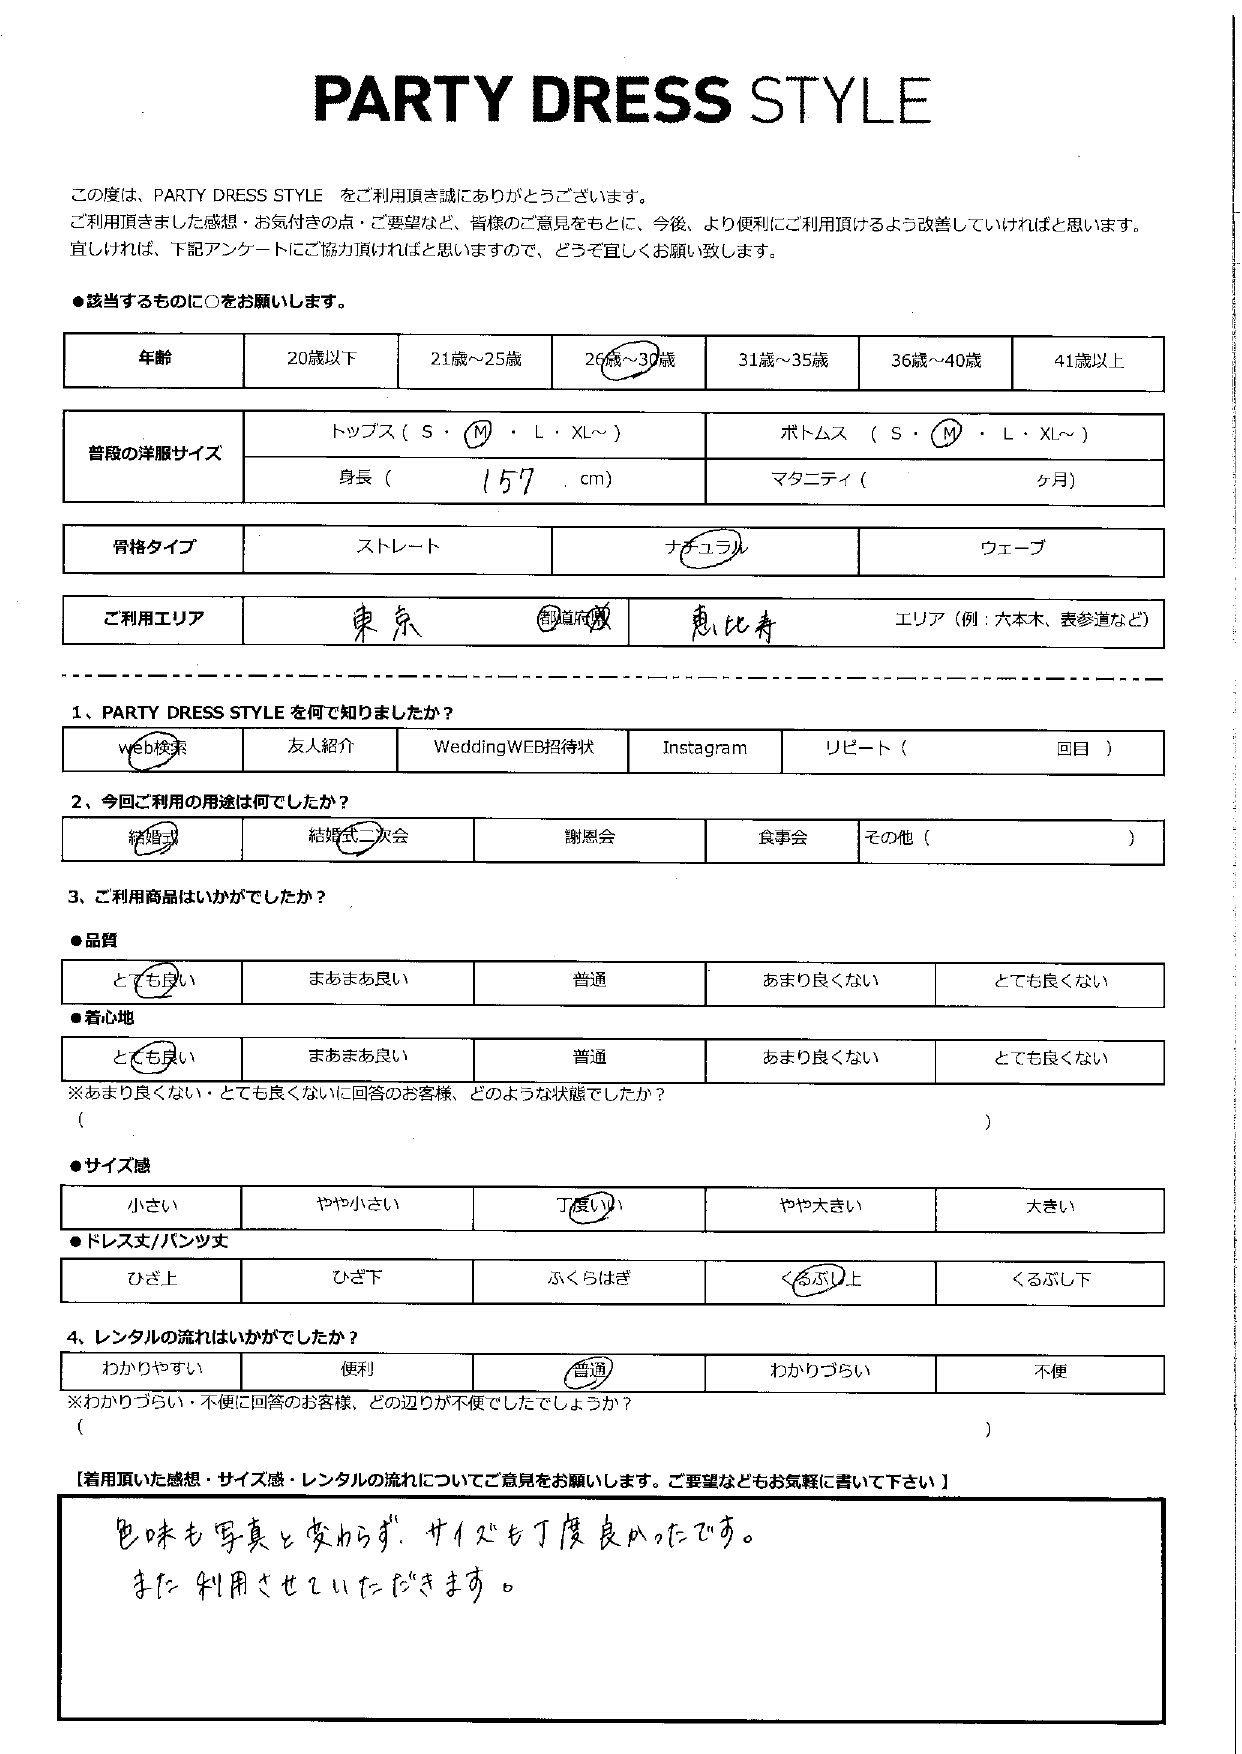 PARTY DRESS STYLE
この度は、PARTY DRESS STYLE をご利用頂き誠にありがとうございます。
ご利用頂きました感想・お気付きの点・ご要望など、皆様のご意見をもとに、今後、より便利にご利用頂けるよう改善していければと思います。
宜しければ、下記アンケートにご協力頂ければと思いますので、どうぞ宜しくお願い致します。
●該当するものに○をお願いします。
年齢 20歳以下 21歳～25歳 26歳～30歳 31歳～35歳 36歳～40歳 41歳以上
普段の洋服サイズ トップス ( S ・ M ・ L ・ XL～ ) ボトムス ( S ・ M ・ L ・ XL～ )
身長 ( 157 cm) マタニティ ( ヶ月)
骨格タイプ ストレート ナチュラル ウェーブ
ご利用エリア 東京 都道府県 恵比寿 エリア（例：六本木、表参道など）
1、PARTY DRESS STYLE を何で知りましたか？
web検索 友人紹介 WeddingWEB招待状 Instagram リピート ( 回目 )
2、今回ご利用の用途は何でしたか？
結婚式 結婚式二次会 謝恩会 食事会 その他 ( )
3、ご利用商品はいかがでしたか？
●品質
とても良い まあまあ良い 普通 あまり良くない とても良くない
●着心地
とても良い まあまあ良い 普通 あまり良くない とても良くない
※あまり良くない・とても良くないに回答のお客様、どのような状態でしたか？
( )
●サイズ感
小さい やや小さい 丁度いい やや大きい 大きい
●ドレス丈/パンツ丈
ひざ上 ひざ下 ふくらはぎ くるぶし上 くるぶし下
4、レンタルの流れはいかがでしたか？
わかりやすい 便利 普通 わかりづらい 不便
※わかりづらい・不便に回答のお客様、どの辺りが不便でしたでしょうか？
( )
【着用頂いた感想・サイズ感・レンタルの流れについてご意見をお願いします。ご要望などもお気軽に書いて下さい】
色味も写真と変わらず、サイズも丁度良かったです。
また利用させていただきます。